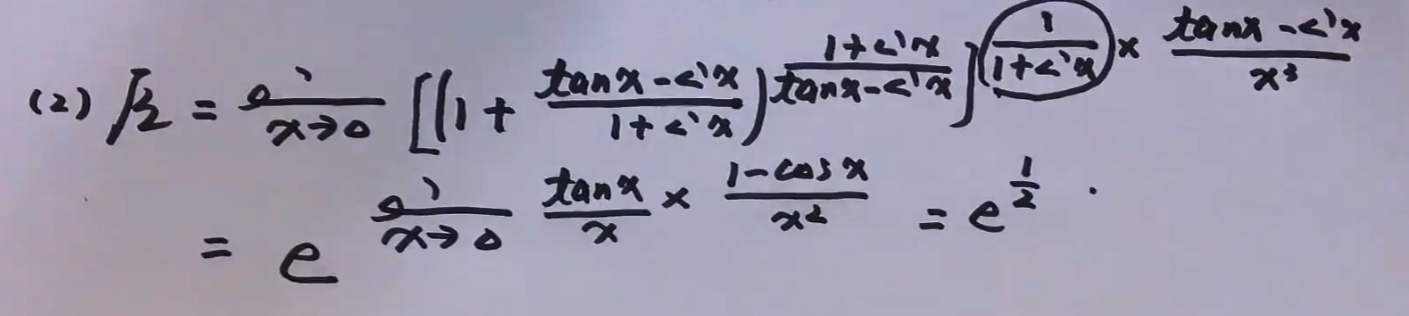 (2) 原式 = lim_{x→0} [(1 + \frac{tanx - sinx}{1 + sinx})^{\frac{1 + sinx}{tanx - sinx}}]^{\frac{1}{1 + sinx} × \frac{tanx - sinx}{x^3}}
= e^{lim_{x→0} \frac{tanx}{x} × \frac{1 - cosx}{x^2}} = e^{\frac{1}{2}}.